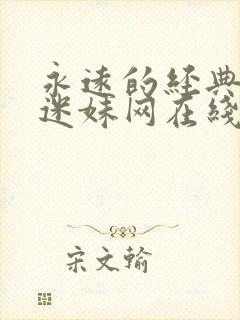 永远的经典
迷妹网在线
宋文翰